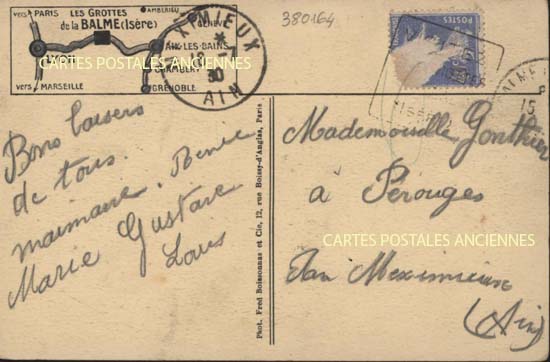 vers PARIS
LES GROTTES
de la BALME (Isère)
AMBÉRIEU
GENÈVE
AIX-LES-BAINS
CHAMBERY
GRENOBLE
vers MARSEILLE
XIMIEUX
*
30
AIN
380164
POSTES
15
CARTES POSTALES ANCIENNES
Bons baisers
de tous.
maimaine. Renée
Marie Gustave
Louis
Phot. Fred Boissonnas et Cie, 12, rue Boissy-d'Anglas, Paris
Mademoiselle Gonthier
à Pérouges
CARTES POSTALES ANCIENNES
Par Meximieux
(Ain)